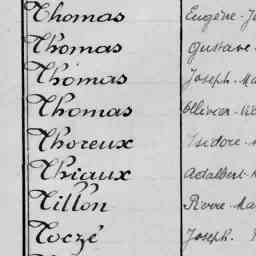 Thomas Eugène-J
Thomas Gustave
Thomas Joseph-Ma
Thomas Ollivier-
Thoreux Isidore-
Thriaux Adalbert-
Tillon Pierre-Ma
Toczé Joseph.